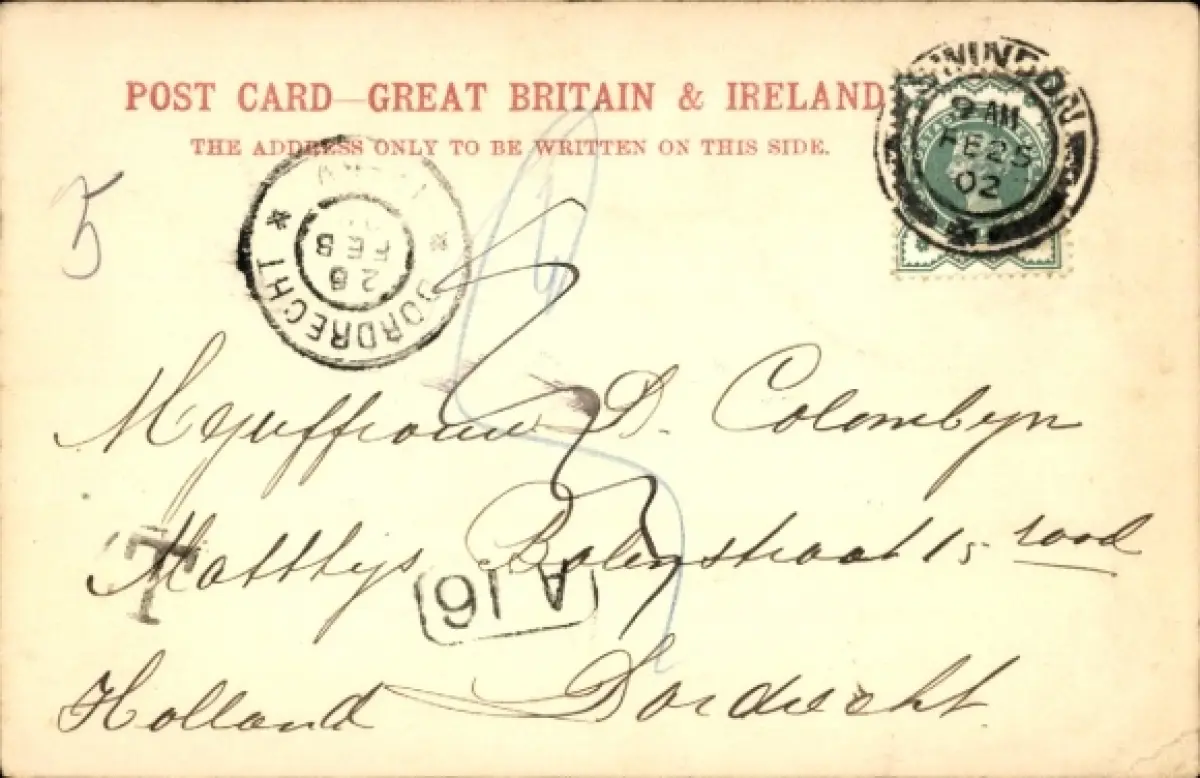 POST CARD—GREAT BRITAIN & IRELAND
THE ADDRESS ONLY TO BE WRITTEN ON THIS SIDE.
SWINDON
9 AM
FE 25
02
5
DORDRECHT
26
FEB
Mejuffrouw D. Colombyn
Matthys Balenstraat 15 rood
T
A 16
Holland Dordrecht.